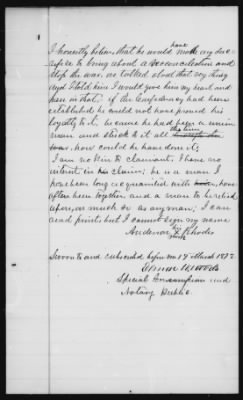 I honestly believe that he would have made any sac-
rifice to bring about a reconciliation and
stop the war, we talked about that very thing
and I told him I would give him my heart and
hand in that; if the Confederacy had been
established he could not have proved his
loyalty to it because he had been a union
man and stuck to it all this time through the
war, how could he have done it;
I am no kin to claimant. I have no
interest in his claim; he is a man I
have been long acquainted with have
often been together and a man to be relied
upon, as much so as any man; I can
read print, but I cannot sign my name
Anderson X Rhodes
mark
Sworn to and subscribed before me 19 March 187
Special Commissioner and
Notary Public.